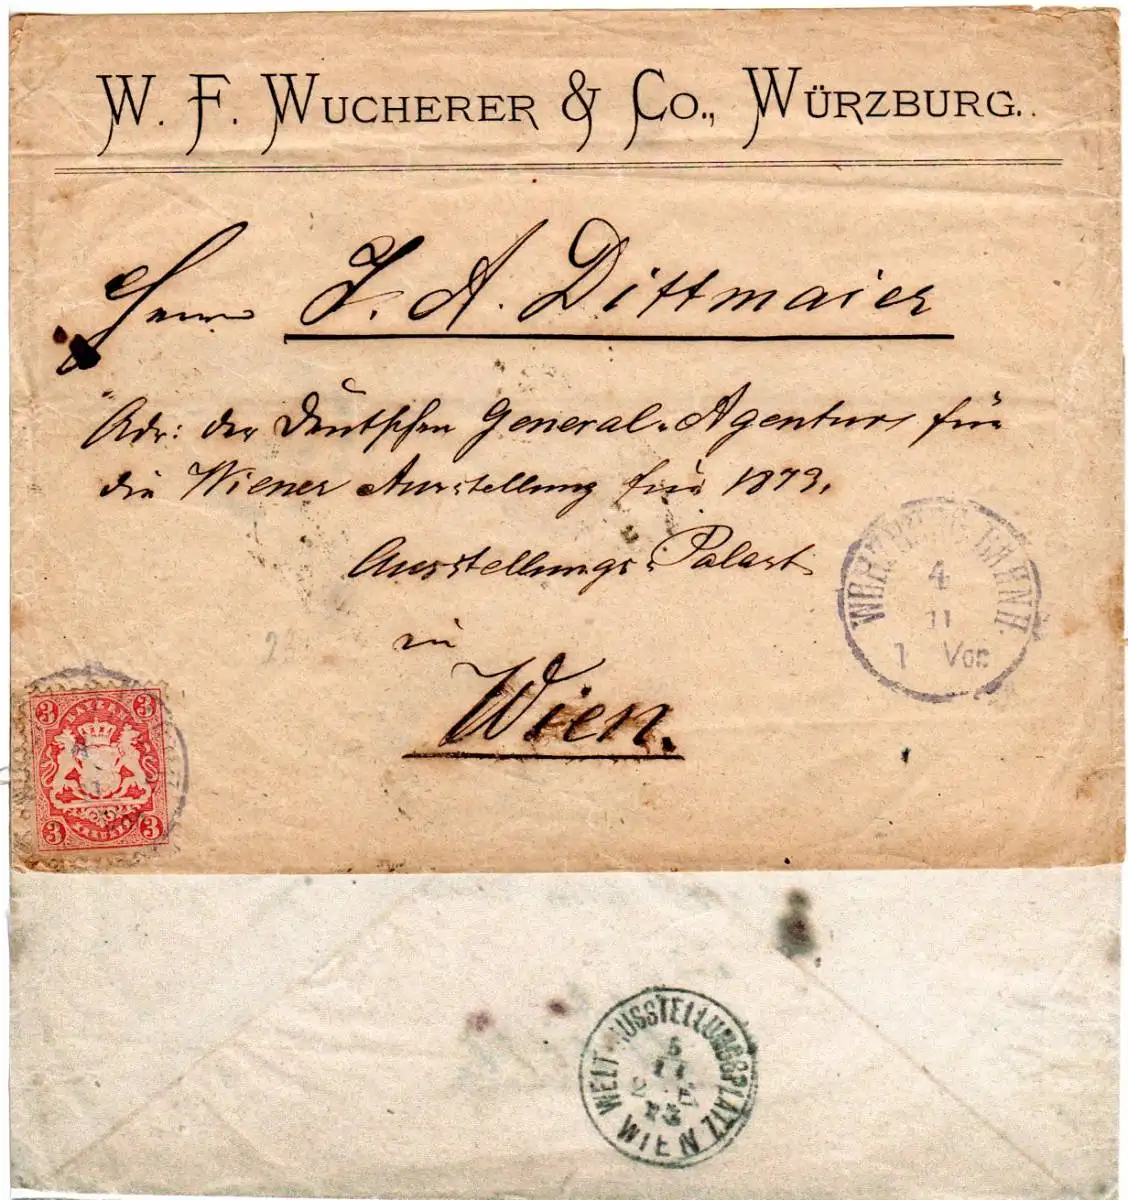 W. F. WUCHERER & CO., WÜRZBURG.
Herrn J. A. Dittmaier
Adr: der Deutschen General-Agentur für
die Wiener Ausstellung für 1873.
Ausstellungs-Palast
in
Wien.
WÜRZBURG BAHNH.
4
11
1 Vor
3 BAYERN 3
3 KREUZER 3
WELT-AUSSTELLUNGSPLATZ
5
11
73
WIEN